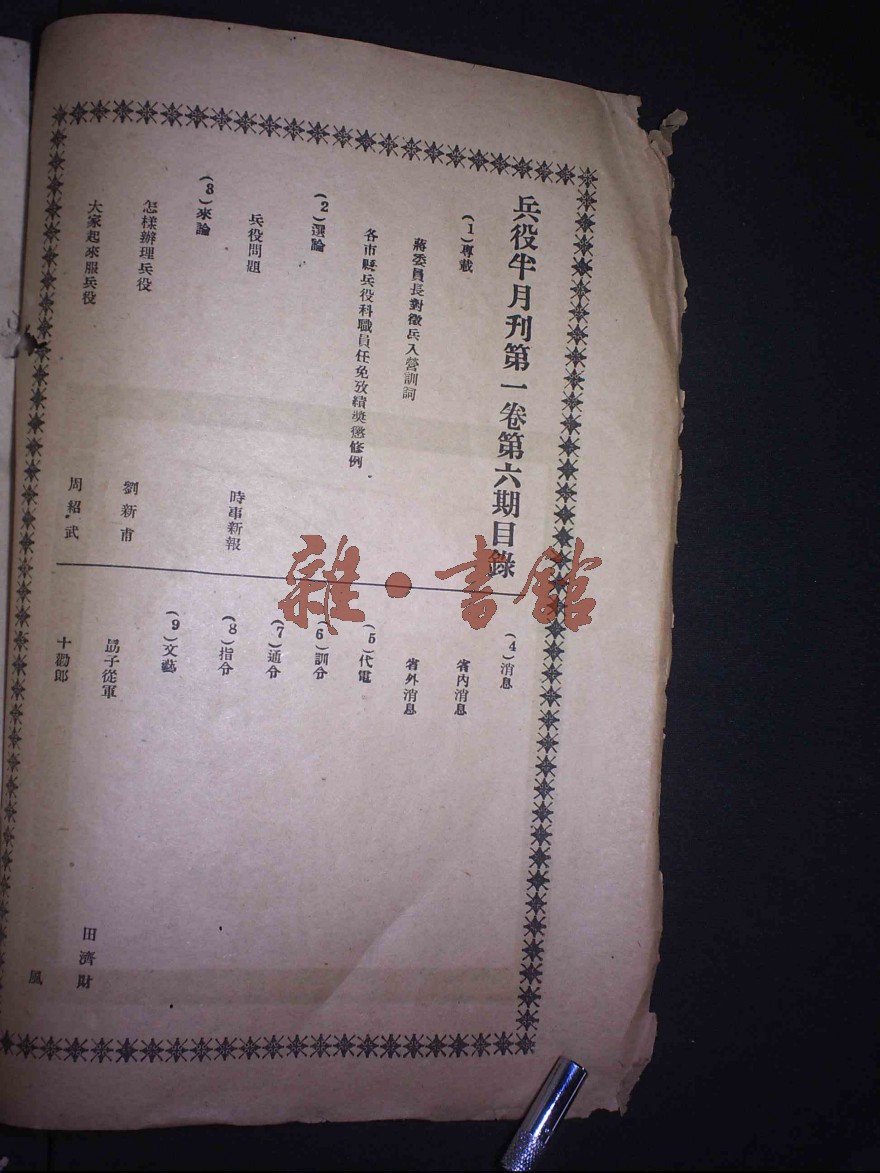 兵役半月刊第一卷第六期目錄
(1)專載
蔣委員長對徵兵入營訓詞
各市縣兵役科職員任免攷績奬懲修例
(2)選論
兵役問題 時事新報
(3)來論
怎樣辦理兵役 劉新甫
大家起來服兵役 周紹武
(4)消息
省內消息
省外消息
(5)代電
(6)訓令
(7)通令
(8)指令
(9)文藝
勗子從軍 田濟財
十勸郎 風
雜·書館